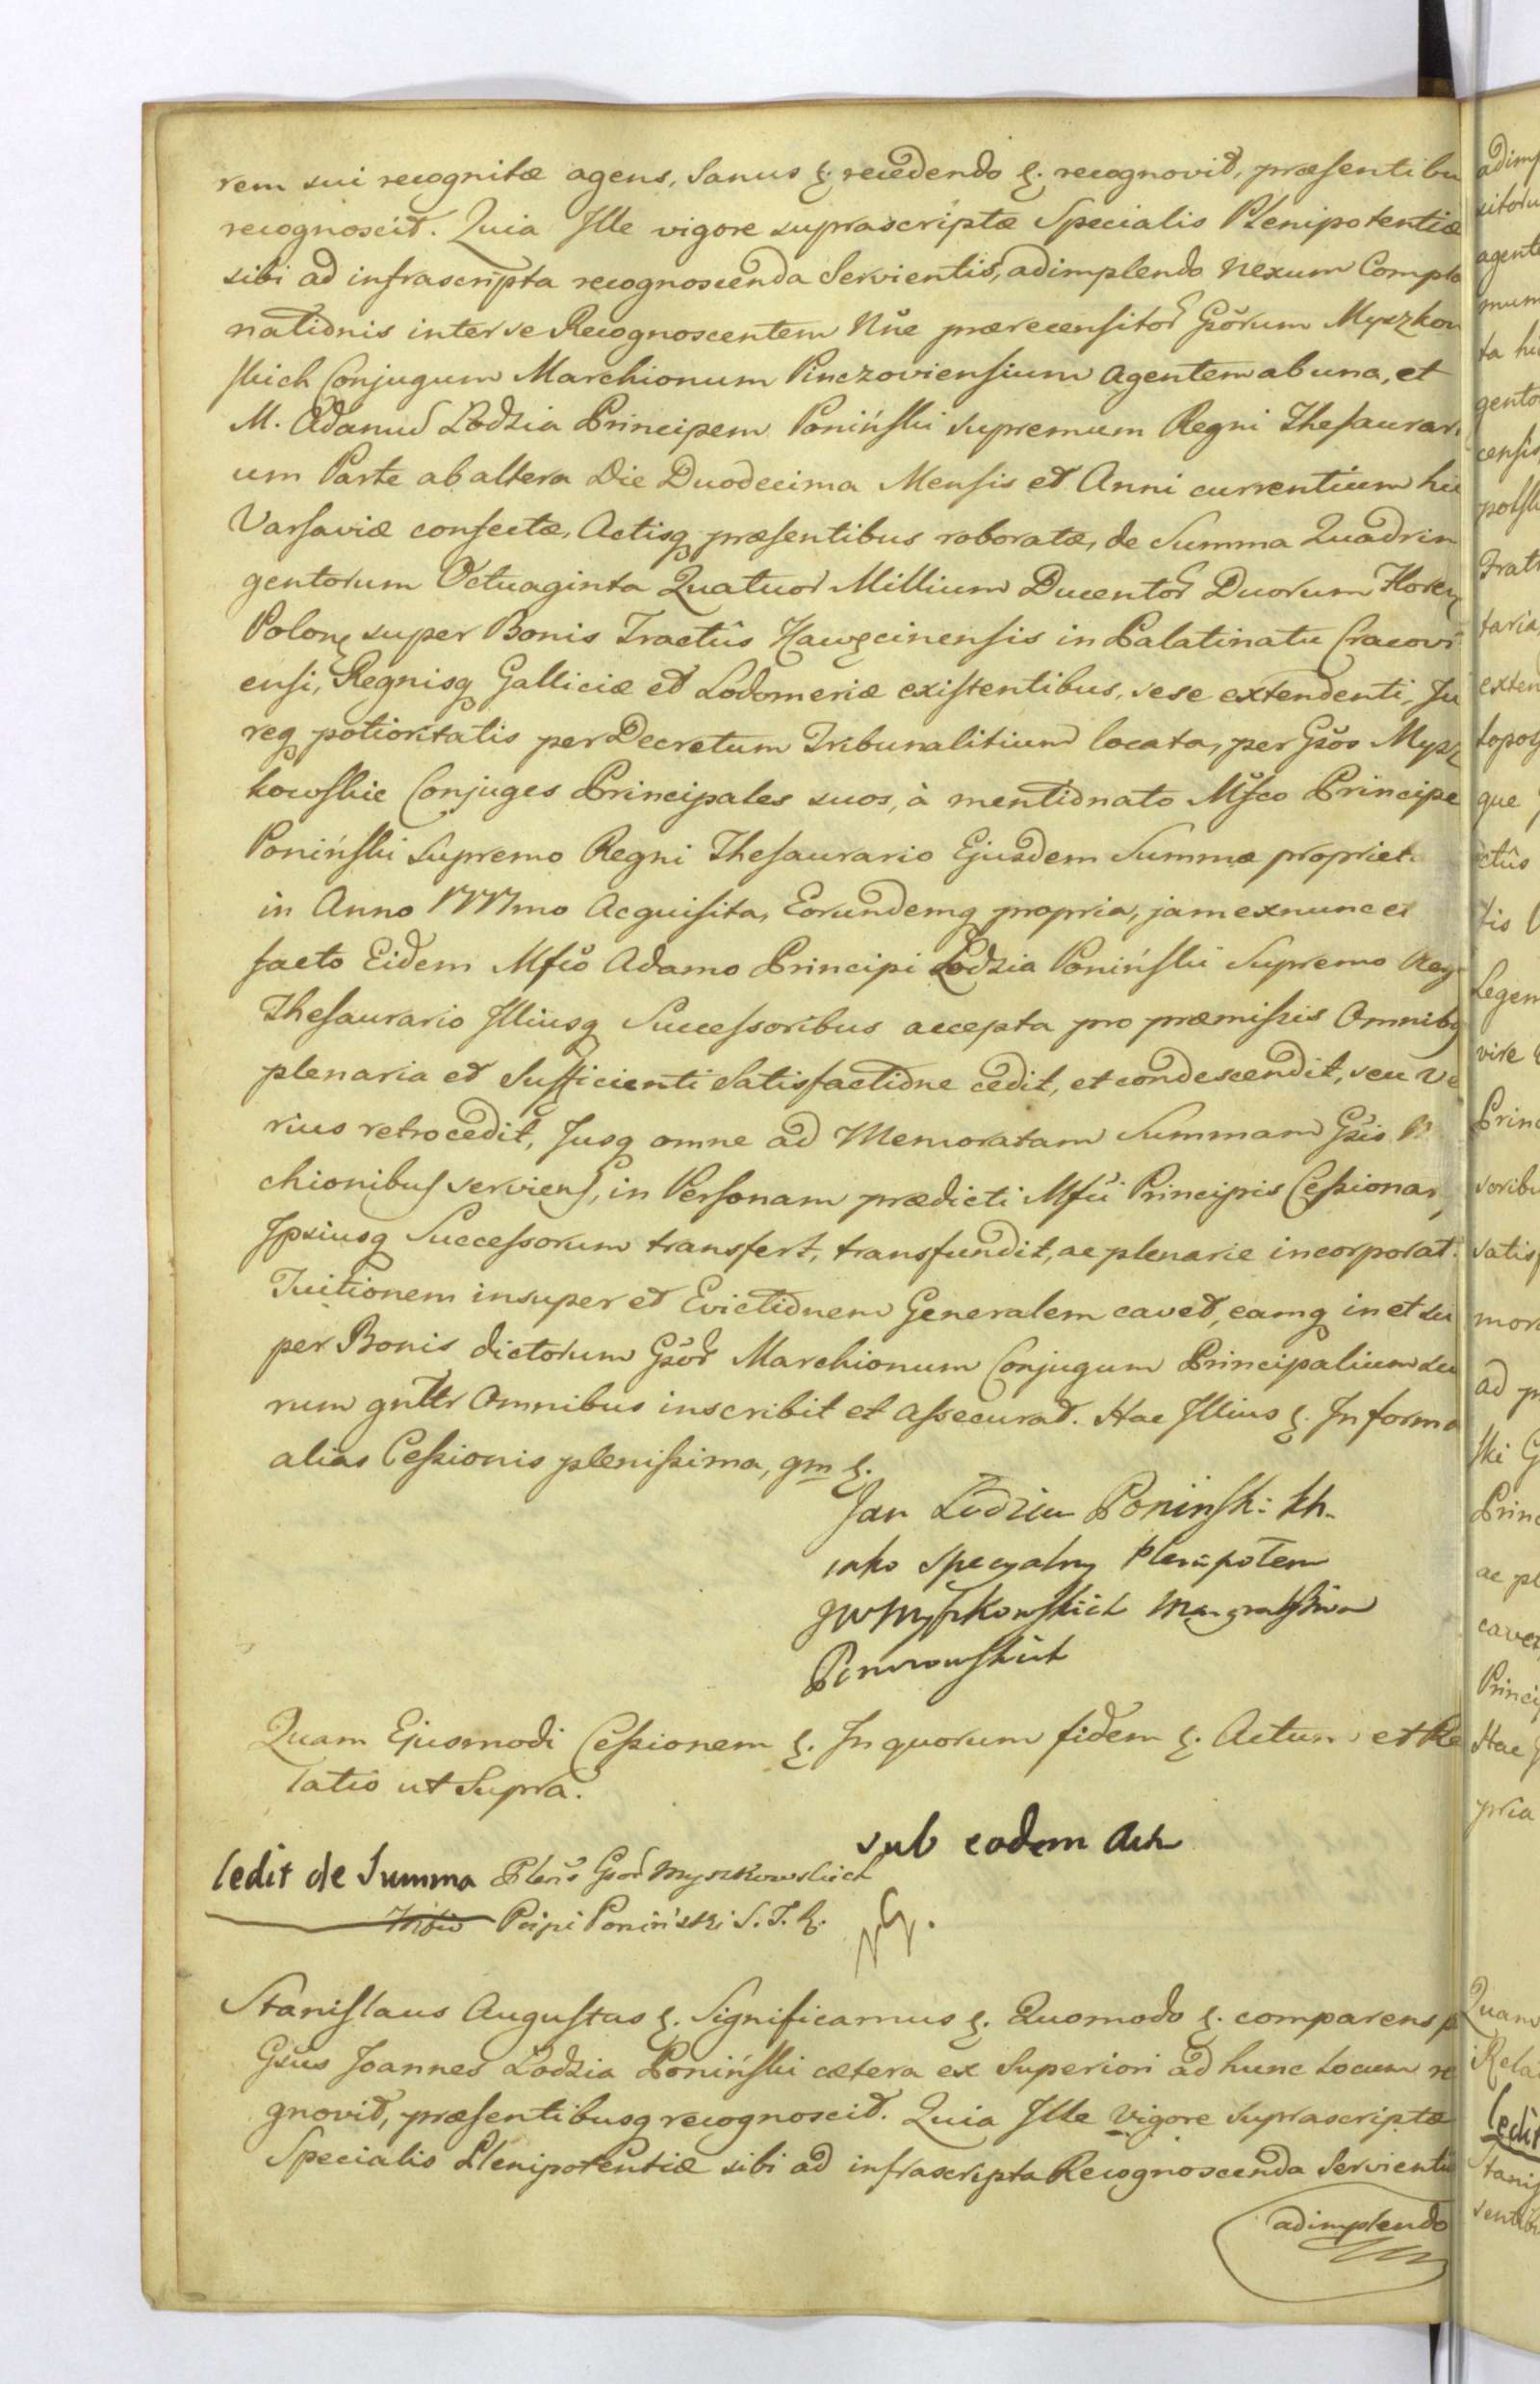 rem sui recognitæ agens, Sanus &. recedendo &. recognovit, præsentibu
recognoscit. Quia Ille vigore suprascriptæ Specialis Plenipotentiæ
sibi ad infrascripta recognoscenda Servientis, adimplendo nexum Compla
nationis inter se Recognoscentem Nne prærecensitor Gsorum Myszkow
skich Conjugum Marchionum Pinczoviensium Agentem ab una, et
M. Adamum Lodzia Principem Poniński Supremum Regni Thesaurari
um Parte ab altera Die Duodecima Mensis et Anni currentium hic
Varsaviæ confectæ, Actisq præsentibus roboratæ, de Summa Quadrin
gentorum Octuaginta Quatuor Millium Ducentor Duorum Floren
Polon super Bonis Tractûs Xawęcinensis in Palatinatu Cracovi
ensi, Regnisq Galliciæ et Lodomeriæ existentibus, sese extendenti, Ju
req potioritatis per Decretum Tribunalitium locata, per Gsos Mysz
kowskie Conjuges Principales suos, à mentionato Mfco Principe
Poniński Supremo Regni Thesaurario Ejusdem Summæ propriet
in Anno 1777mo Acquisita, Eorundemq propria, jam exnunc et
facto Eidem Mfco Adamo Principi Lodzia Poniński Supremo Reg
Thesaurario Illiusq Successoribus accepta pro præmissis Omnibq
plenaria et Sufficienti Satisfactione cedit, et condescendit, seu Ve
rius retrocedit, Jusq omne ad Memoratam Summam Gsis M
chionibus serviens, in Personam prædicti Mfci Principis Cessionar
Ipsiusq Successorum transfert, transfundit, ac plenarie incorporat.
Tuitionem insuper et Evictionem Generalem cavet, eamq in et su
per Bonis dictorum Gsor Marchionum Conjugum Principalium suo
rum gnltr Omnibus inscribit et assecurat. Hac Illius &. In forma
alias Cessionis plenissima, gm &.
Jan Lodzia Poninski kh.
iako specyalny Plenipotent
JW Myszkowskich Margrabiow
Pinczowskich
Quam Ejusmodi Cessionem &. In quorum fidem &. Actum et Re
latio ut Supra.
sub eodem Actu
Cedit de Summa Plens Gsor Myszkowskich
Pcipi Poniński S. T. R.
Stanislaus Augustus &. Significamus &. Quomodo &. comparens p
Gsus Joannes Lodzia Poniński cætera ex Superiori ad hunc locum re
gnovit, præsentibusq recognoscit. Quia Ille vigore Suprascriptæ
Specialis Plenipotentiæ sibi ad infrascripta Recognoscenda Servientis
adimplendo